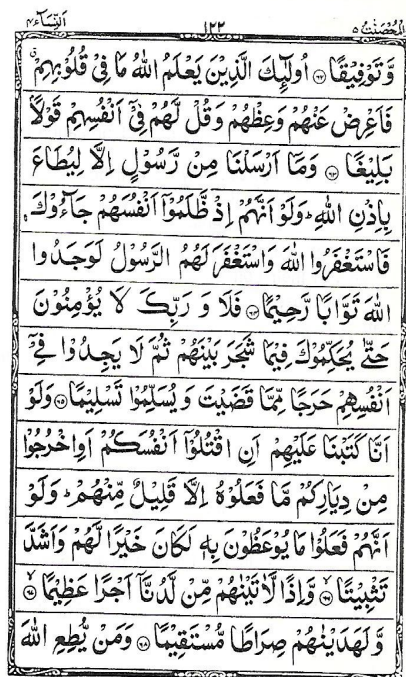 النسآء٤ ١٢٢ والمحصنت٥
وَّتَوْفِيْقًا ﴿۶۲﴾ اُولٰٓئِكَ الَّذِيْنَ يَعْلَمُ اللّٰهُ مَا فِيْ قُلُوْبِهِمْ ۗ
فَاَعْرِضْ عَنْهُمْ وَعِظْهُمْ وَقُلْ لَّهُمْ فِيْٓ اَنْفُسِهِمْ قَوْلًاۢ
بَلِيْغًا ﴿۶۳﴾ وَمَآ اَرْسَلْنَا مِنْ رَّسُوْلٍ اِلَّا لِيُطَاعَ
بِاِذْنِ اللّٰهِ ؕ وَلَوْ اَنَّهُمْ اِذْ ظَّلَمُوْٓا اَنْفُسَهُمْ جَآءُوْكَ
فَاسْتَغْفَرُوا اللّٰهَ وَاسْتَغْفَرَ لَهُمُ الرَّسُوْلُ لَوَجَدُوا
اللّٰهَ تَوَّابًا رَّحِيْمًا ﴿۶۴﴾ فَلَا وَ رَبِّكَ لَا يُؤْمِنُوْنَ
حَتّٰى يُحَكِّمُوْكَ فِيْمَا شَجَرَ بَيْنَهُمْ ثُمَّ لَا يَجِدُوْا فِيْٓ
اَنْفُسِهِمْ حَرَجًا مِّمَّا قَضَيْتَ وَ يُسَلِّمُوْا تَسْلِيْمًا ﴿۶۵﴾ وَلَوْ
اَنَّا كَتَبْنَا عَلَيْهِمْ اَنِ اقْتُلُوْٓا اَنْفُسَكُمْ اَوِ اخْرُجُوْا
مِنْ دِيَارِكُمْ مَّا فَعَلُوْهُ اِلَّا قَلِيْلٌ مِّنْهُمْ ؕ وَلَوْ
اَنَّهُمْ فَعَلُوْا مَا يُوْعَظُوْنَ بِهٖ لَكَانَ خَيْرًا لَّهُمْ وَاَشَدَّ
تَثْبِيْتًا ﴿۶۶﴾ وَّاِذًا لَّاٰتَيْنٰهُمْ مِّنْ لَّدُنَّآ اَجْرًا عَظِيْمًا ﴿۶۷﴾
وَّ لَهَدَيْنٰهُمْ صِرَاطًا مُّسْتَقِيْمًا ﴿۶۸﴾ وَمَنْ يُّطِعِ اللّٰهَ